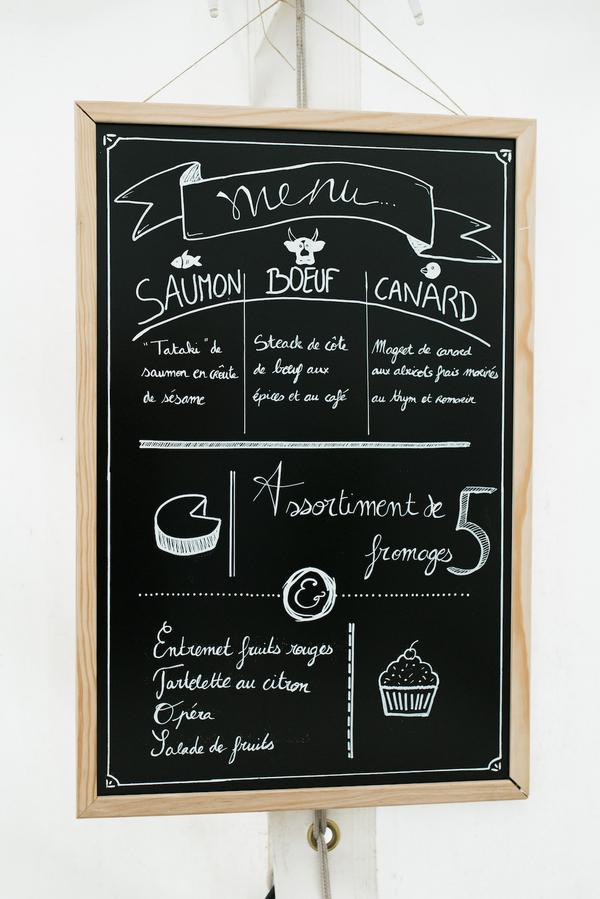 menu...
SAUMON
"Tataki" de
saumon en croûte
de sésame
BOEUF
Steack de côte
de bœuf aux
épices et au café
CANARD
Magret de canard
aux abricots frais marinés
au thym et Romarin
Assortiment de 5
fromages
&
Entremet fruits rouges
Tartelette au citron
Opéra
Salade de fruits